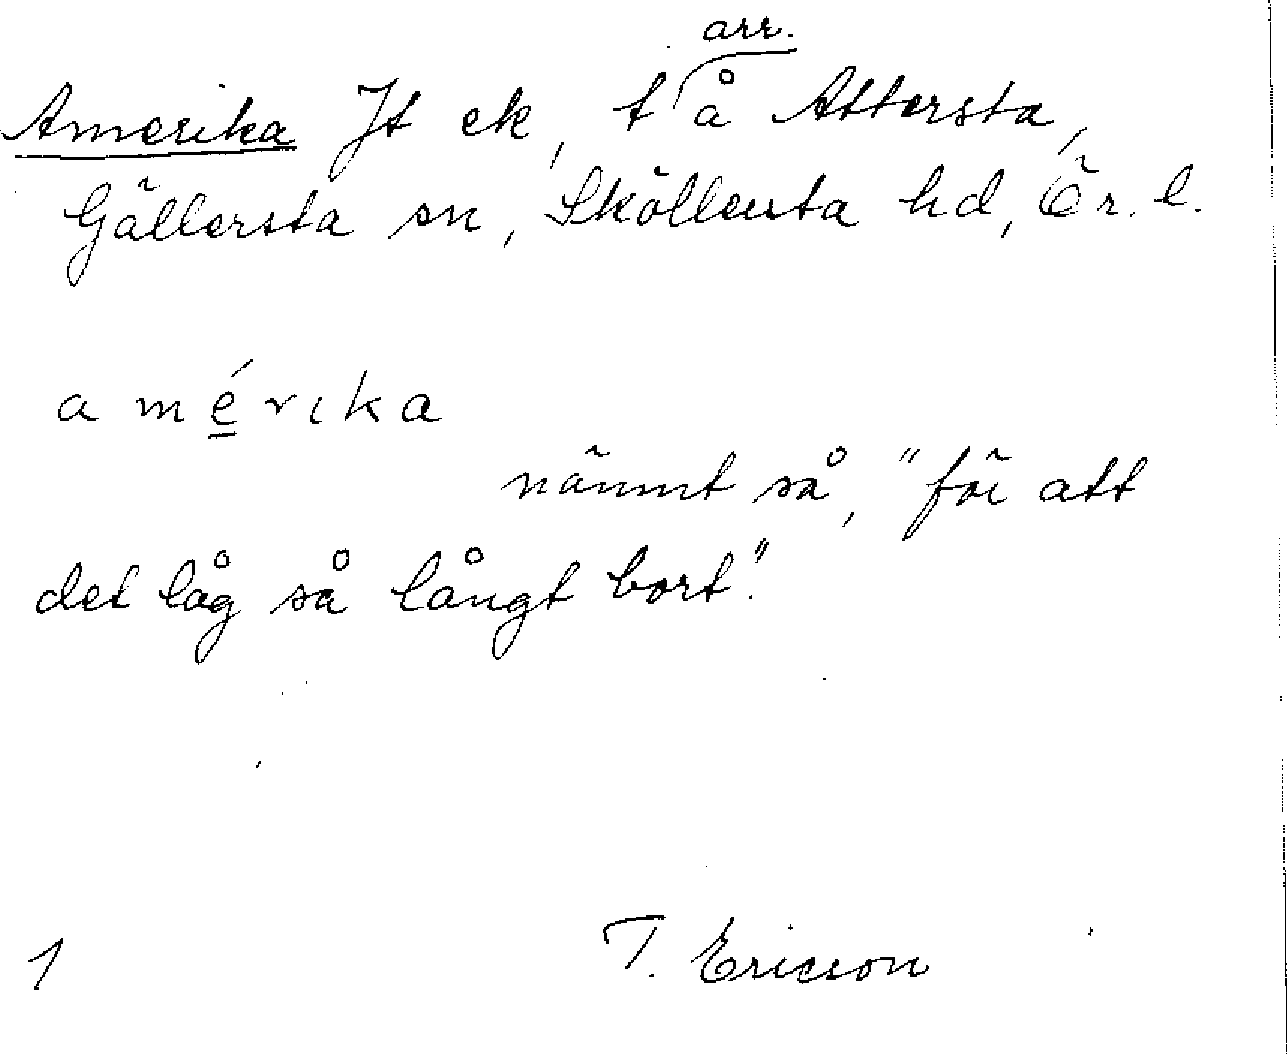 arr.
Amerika Jt ek, t å Attersta,
Gällersta sn, Sköllersta hd, Ör. l.
amérika
nämnt så, "för att
det låg så långt bort".
1 T. Ericson